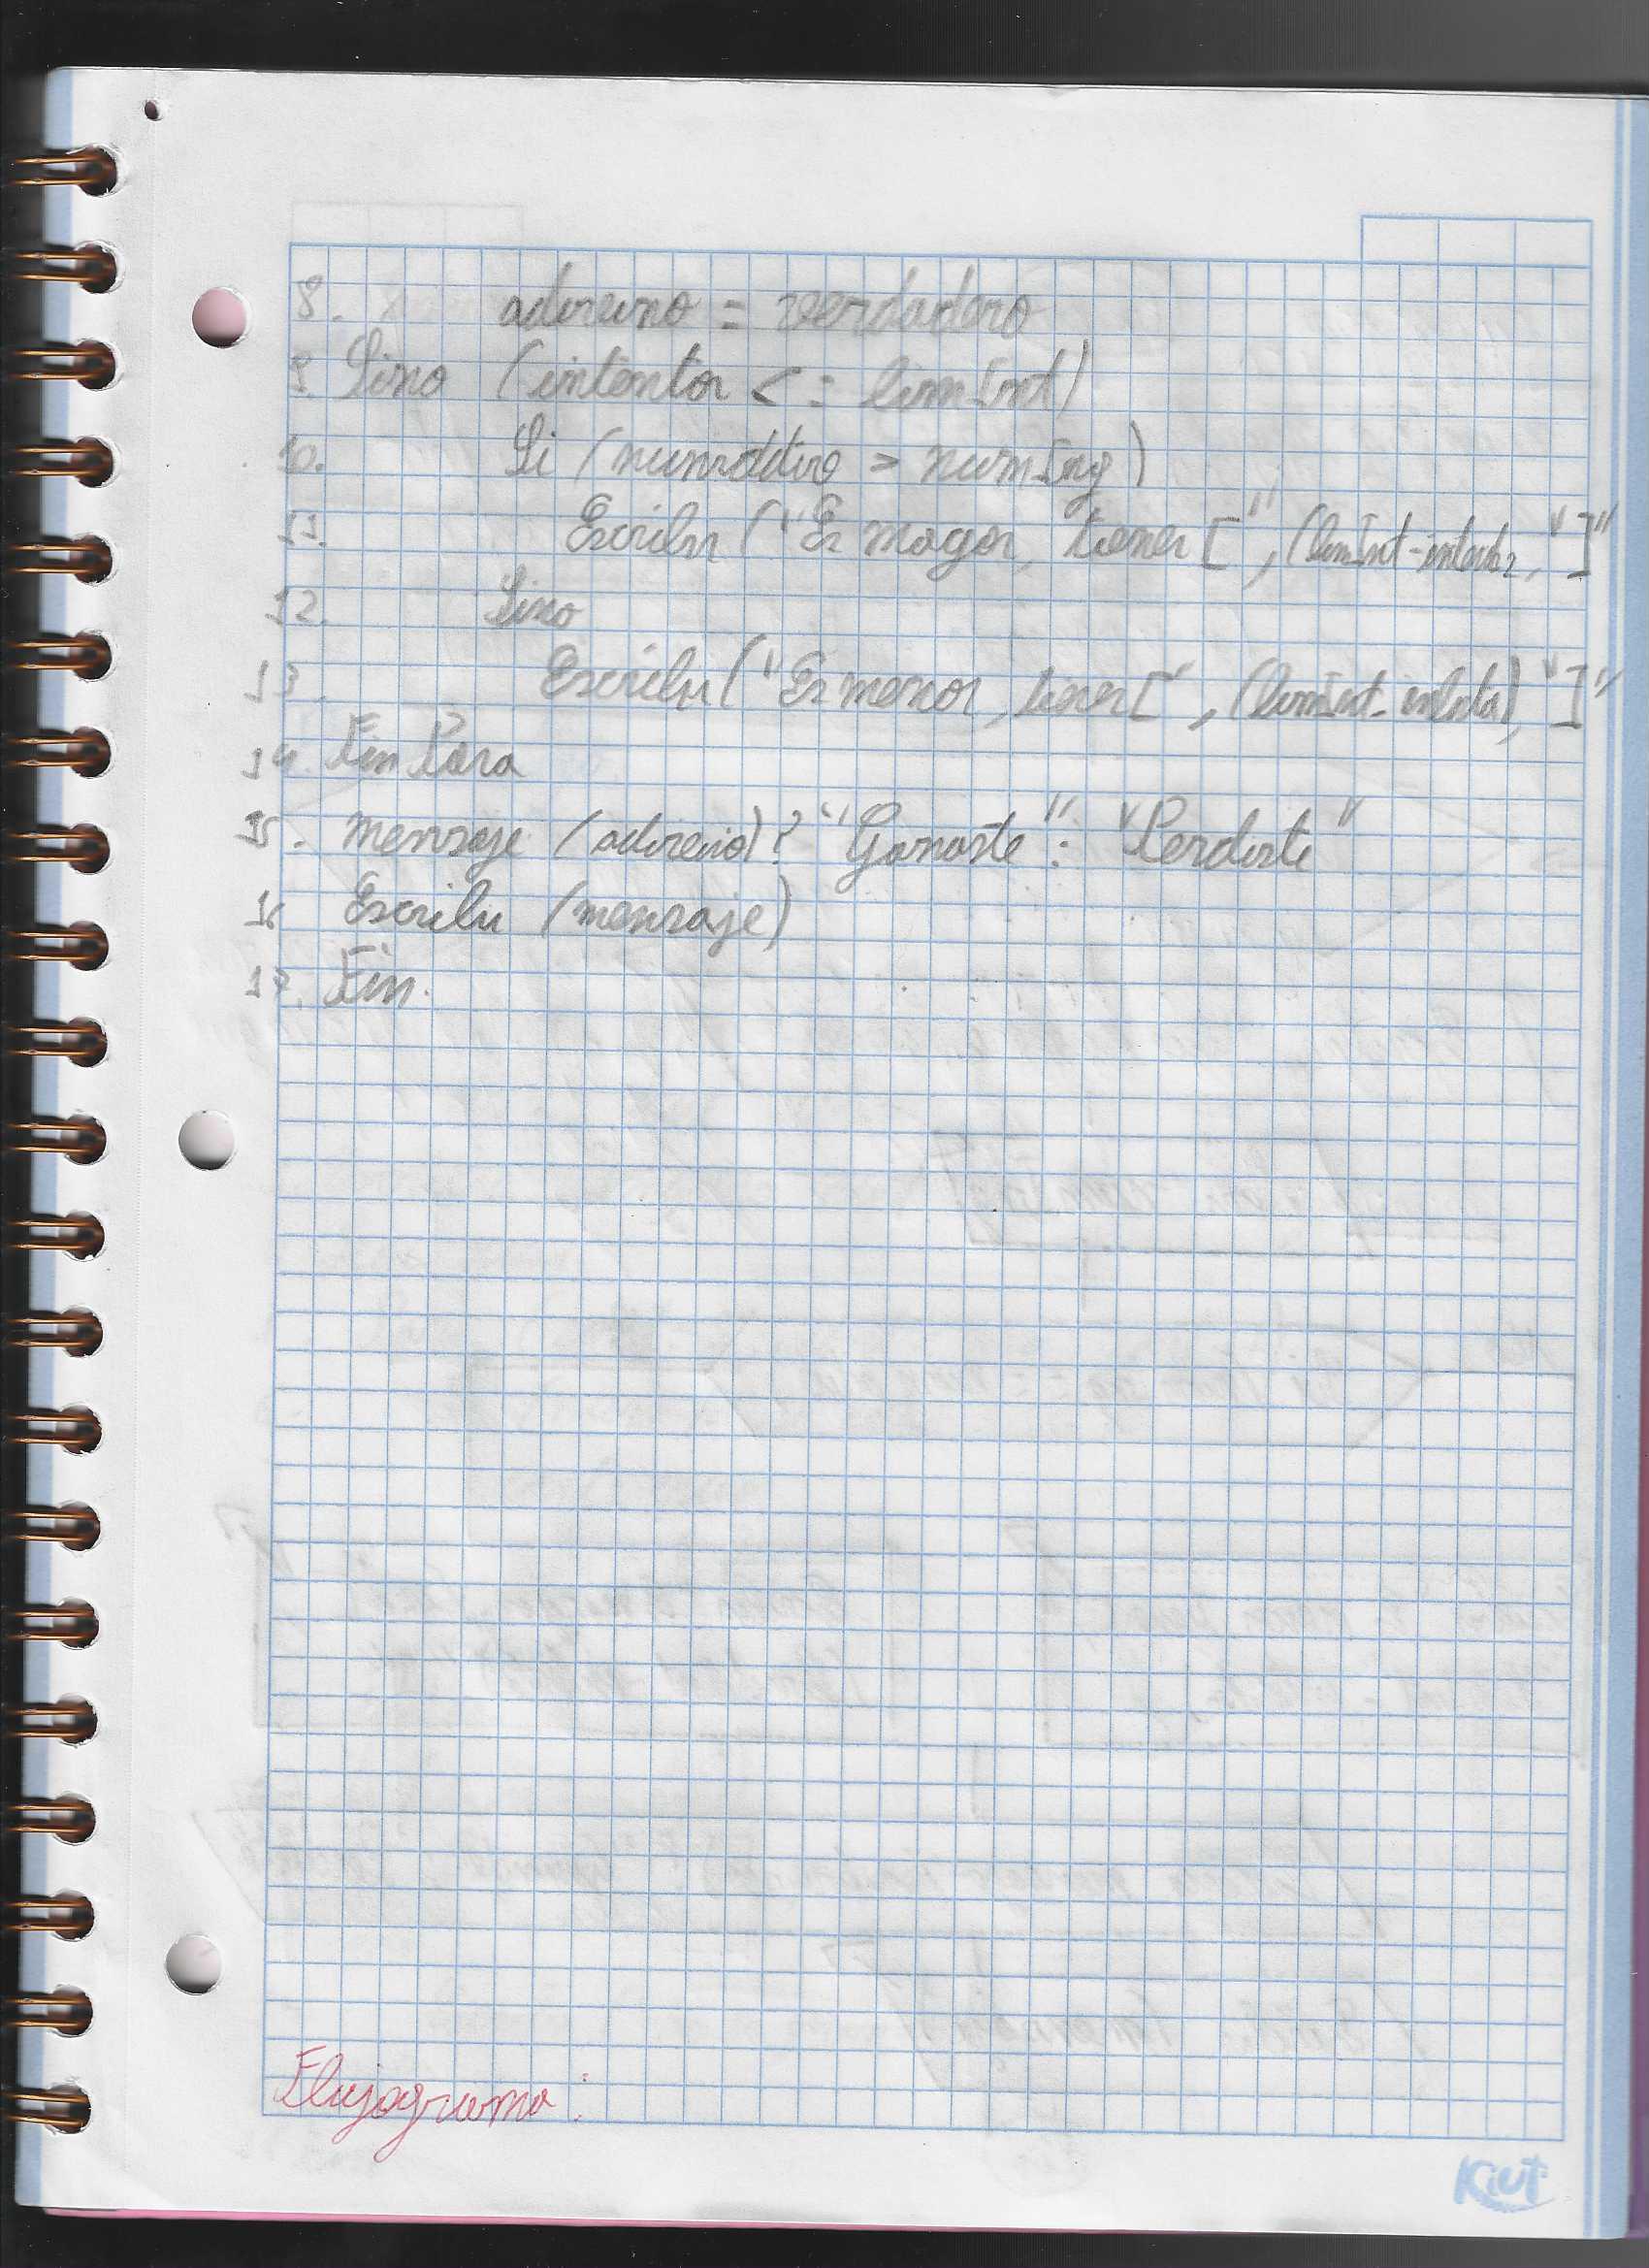 8. adivino = verdadero
9. Sino (intentos <= limInt)
10. Si (numAdivino > numIng)
11. Escribir ("Es mayor, tienes [", (limInt-intentos, "]"
12. Sino
13. Escribir ("Es menor, tienes [", (limInt-intentos), "]"
14. Fin Para
15. mensaje (adivino)? "Ganaste": "Perdiste"
16 Escribir (mensaje)
17. Fin.
Flujograma:
Kiut